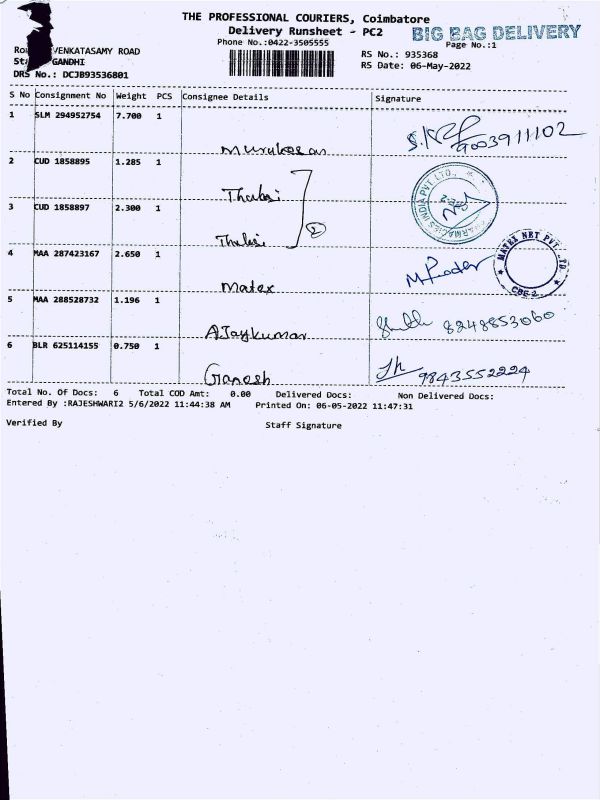 THE PROFESSIONAL COURIERS, Coimbatore
Delivery Runsheet - PC2
BIG BAG DELIVERY
Phone No.:0422-3505555
Page No.:1
VENKATASAMY ROAD
RS No.: 935368
GANDHI
RS Date: 06-May-2022
DRS No.: DCJB93536801
S No Consignment No Weight PCS Consignee Details Signature
1 SLM 294952754 7.700 1
Murukesan
2 CUD 1858895 1.285 1
Thulasi
3 CUD 1858897 2.300 1
Thulasi 2
4 MAA 287423167 2.650 1
Matex
MATEX NET PVT. LTD.
CBE-2.
5 MAA 288528732 1.196 1
AJaykumar 8248853060
6 BLR 625114155 0.750 1
Ganesh 9843552224
Total No. Of Docs: 6 Total COD Amt: 0.00 Delivered Docs: Non Delivered Docs:
Entered By :RAJESHWARI2 5/6/2022 11:44:38 AM Printed On: 06-05-2022 11:47:31
Verified By Staff Signature